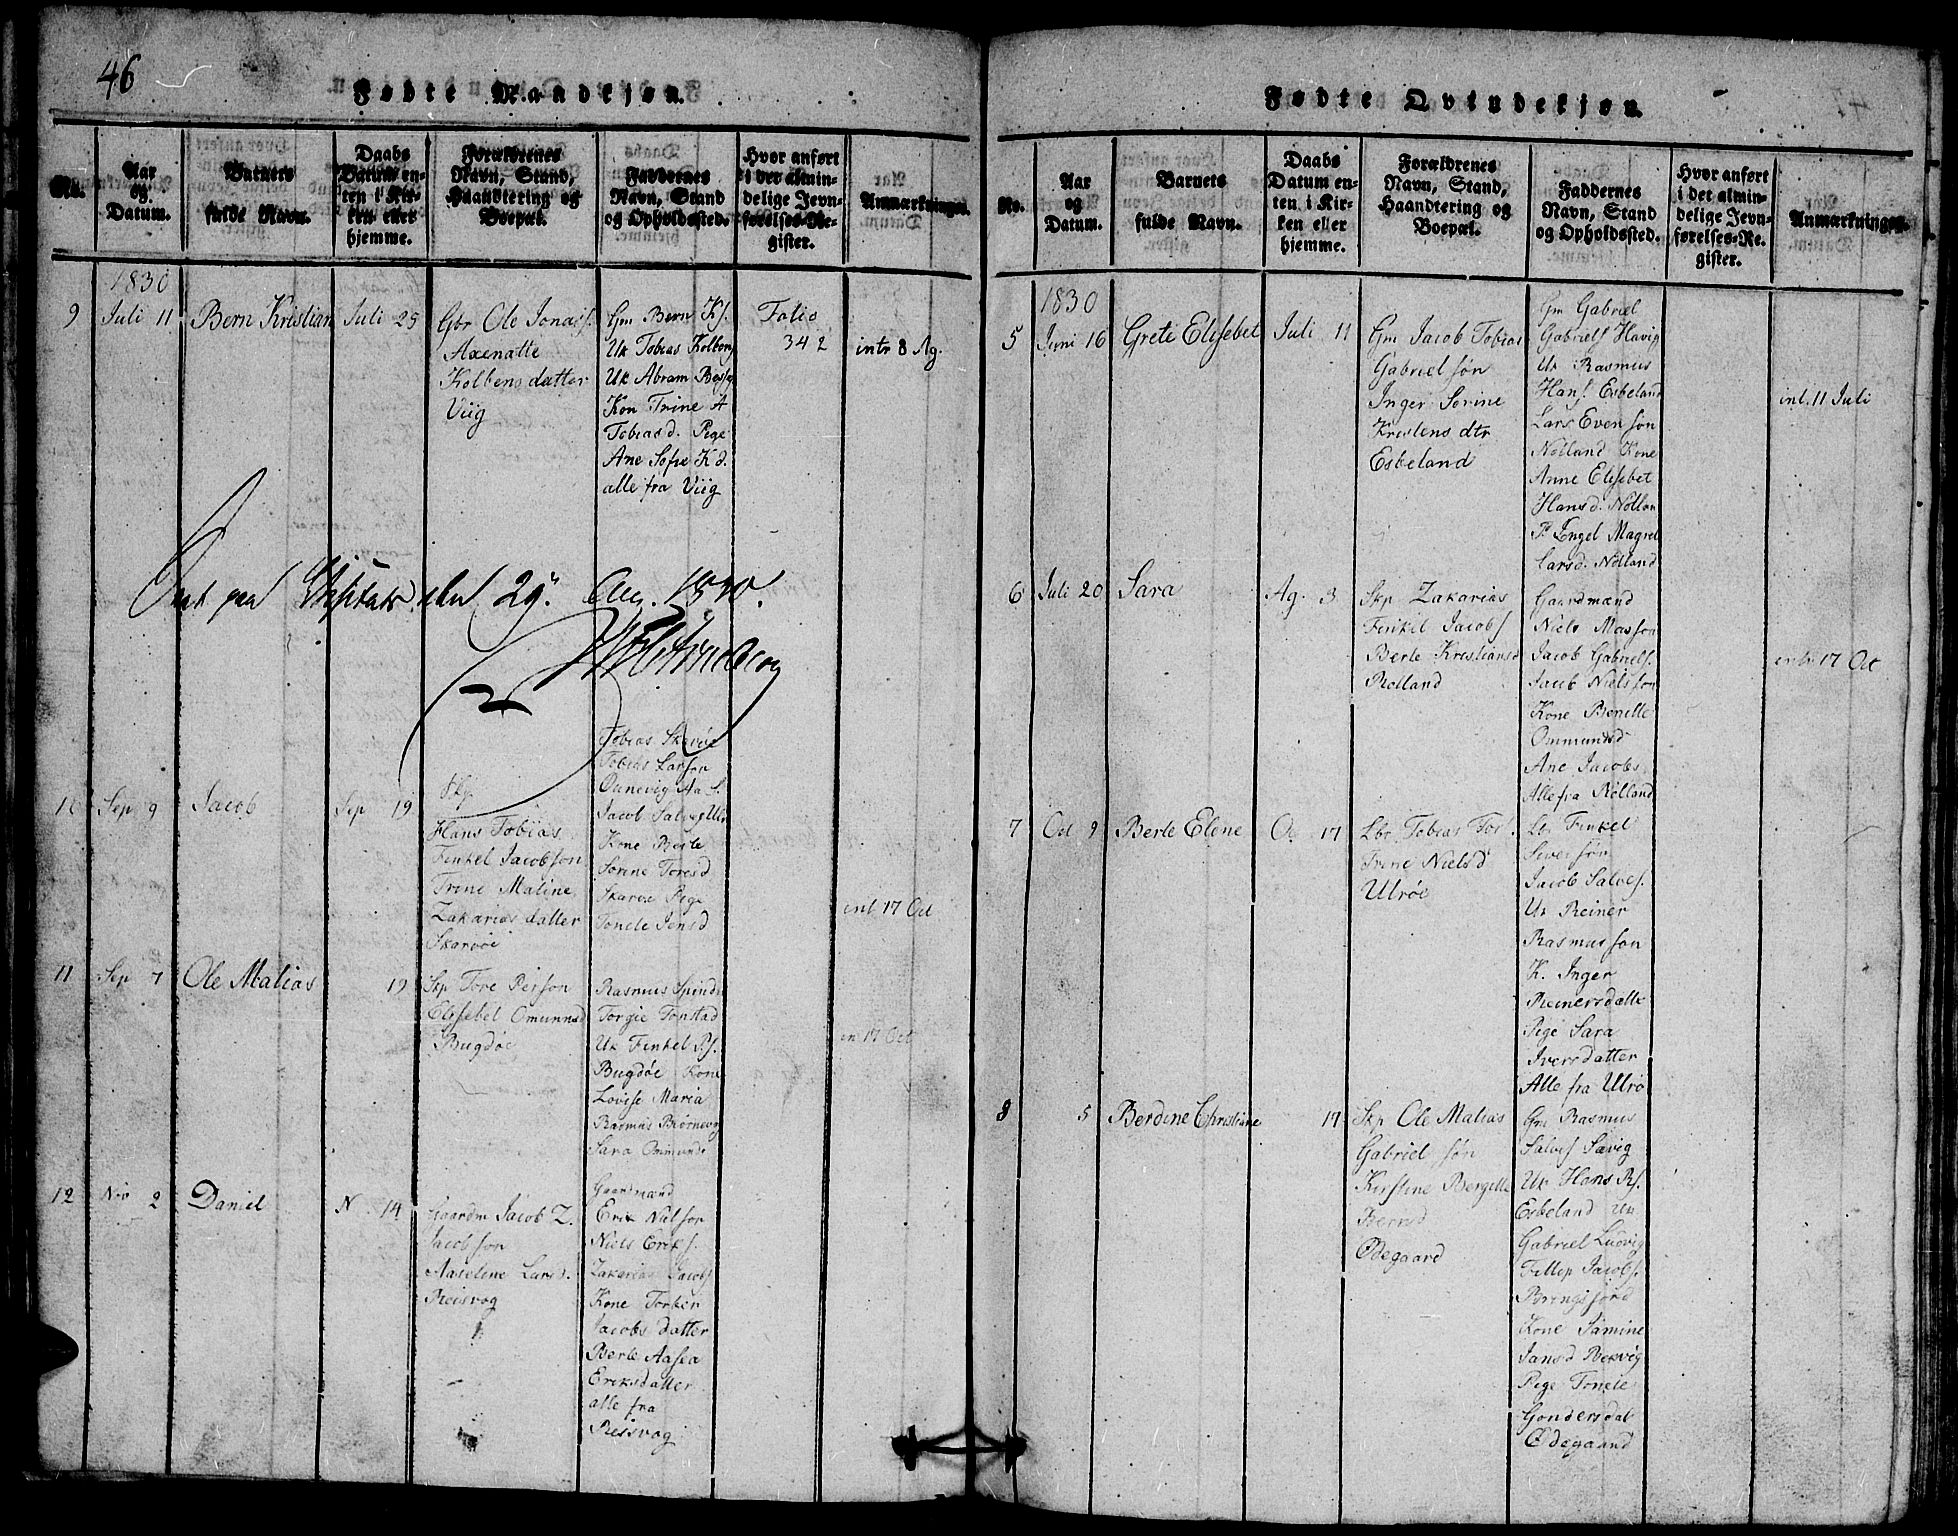 46
Fødte Mandkjøn.
No.
Aar
og
Datum.
Barnets
fulde Navn.
Daabs
Datum en-
ten i Kir-
ken eller
hjemme.
Forældrenes
Navn, Stand,
Haandtering og
Boepæl.
Faddernes
Navn, Stand
og Opholdssted.
Hvor anført
i det almin-
delige Jevn-
førelses-Re-
gister.
Anmærkninger.
1830
9 Juli 11 Bern Kristian Juli 25
Gbr Ole Jonais.
Axenatte
Kolbensdatter
Viig
Gm Bern Ks.
Uk Tobias Kolbens
Uk Abram
Kon Trine A
Tobiasd. Pige
Ane Sofie Kd.
alle fra Viig
Folio
342
intr 8 Ag.
paa den 29 Aug. 1830.
10 Sep 9 Jacob Sep 19
Skp
Hans Tobias
Finkel Jacobson
Trine Maline
Zakarias datter
Skarvøe
Tobias Skarvøe
Tobias Larson
Jacob Salves
Kone Berle
Sorine Toresd
Skarvøe Pige
Tonele Jensd
int 17 Oct
11 Sep 7 Ole Matias 19
Skp Tore Person
Elisebet Omunnsd
Bugdøe
Rasmus
Torgie Tonstad
Uk Finkel Ps.
Bugdøe Kone
Lovise Maria
Rasmus
Sara Ommunds
in 17 Oct
12 Nov 2 Daniel N. 14
Gaardm Jacob Z.
Jacobson
Aaselene Larsd.
Reisvog
Gaardmænd
Erik Nielson
Niels Eriks.
Zakarias Jacobs
Kone Torber
Jacobs datter
Berle Aasea
Eriksdatter
alle fra
Reisvog
Fødte Qvindekjøn.
No.
Aar
og
Datum.
Barnets
fulde Navn.
Daabs
Datum en-
ten i Kir-
ken eller
hjemme.
Forældrenes
Navn, Stand,
Haandtering og
Boepæl.
Faddernes
Navn, Stand
og Opholdssted.
Hvor anført
i det almin-
delige Jevn-
førelses-Re-
gister.
Anmærkninger.
1830
5 Juni 16 Grete Elisebet Juli 11
Gm Jacob Tobias
Gabrielsøn
Inger Sorine
Kristens dtr
Esbeland
Gm Gabriel
Gabriels Havig
Uk Rasmus
Hans. Esbeland
Lars Evensøn
Nölland Kone
Anne Elisebet
Hansd. Nöllan
P. Engel Magrel
Larsd. Nölland
int. 11 Juli
6 Juli 20 Sara Ag. 3
Skp Zakarias
Finkel Jacobs
Berle Kristiansd
Rolland
Gaardmænd
Niels Masson
Jacob Gabriels.
Jacob Nielsson
Kone Benille
Ommundsd
Ane Jacobs
Alle fra Nölland
intr 17 Oct
7 Oct 9 Berle Elene Oc 17
Lbr. Tobias Tor.
Trine Nielsd
Ulrøe
Lbr Finkel
Siversøn
Jacob Salves.
Uk Reiner
Rasmusson
K. Inger
Reinersdatte
Pige Sara
Iversdatter
Alle fra Ulrø
8 5 Berdine Christiane 17
Skp Ole Matias
Gabrielsøn
Kirstine Bergille
Bernsd
Ødegaard
Gm Rasmus
Salves Sævig
Uk Hans Rs.
Esbeland Uk
Gabriel Ludvig
Fillip Jacobs.
Kone Samine
Jansd Rekvig
Pige Tonele
Gondersdat
Ødegaard